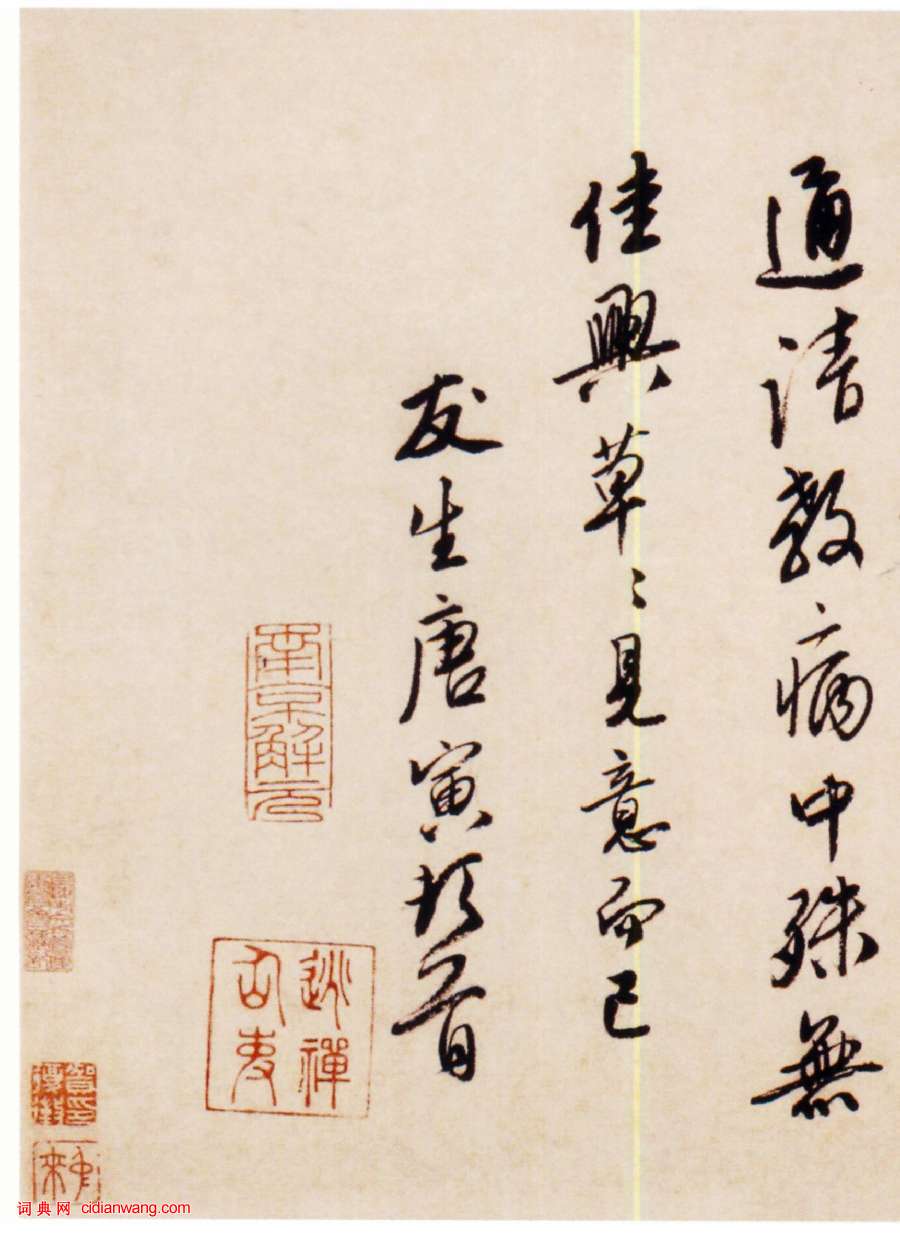 通請教病中殊無
佳興草〻見意而已
友生唐寅頓首
南京解元
逃禪仙吏
词典网 cidianwang.com